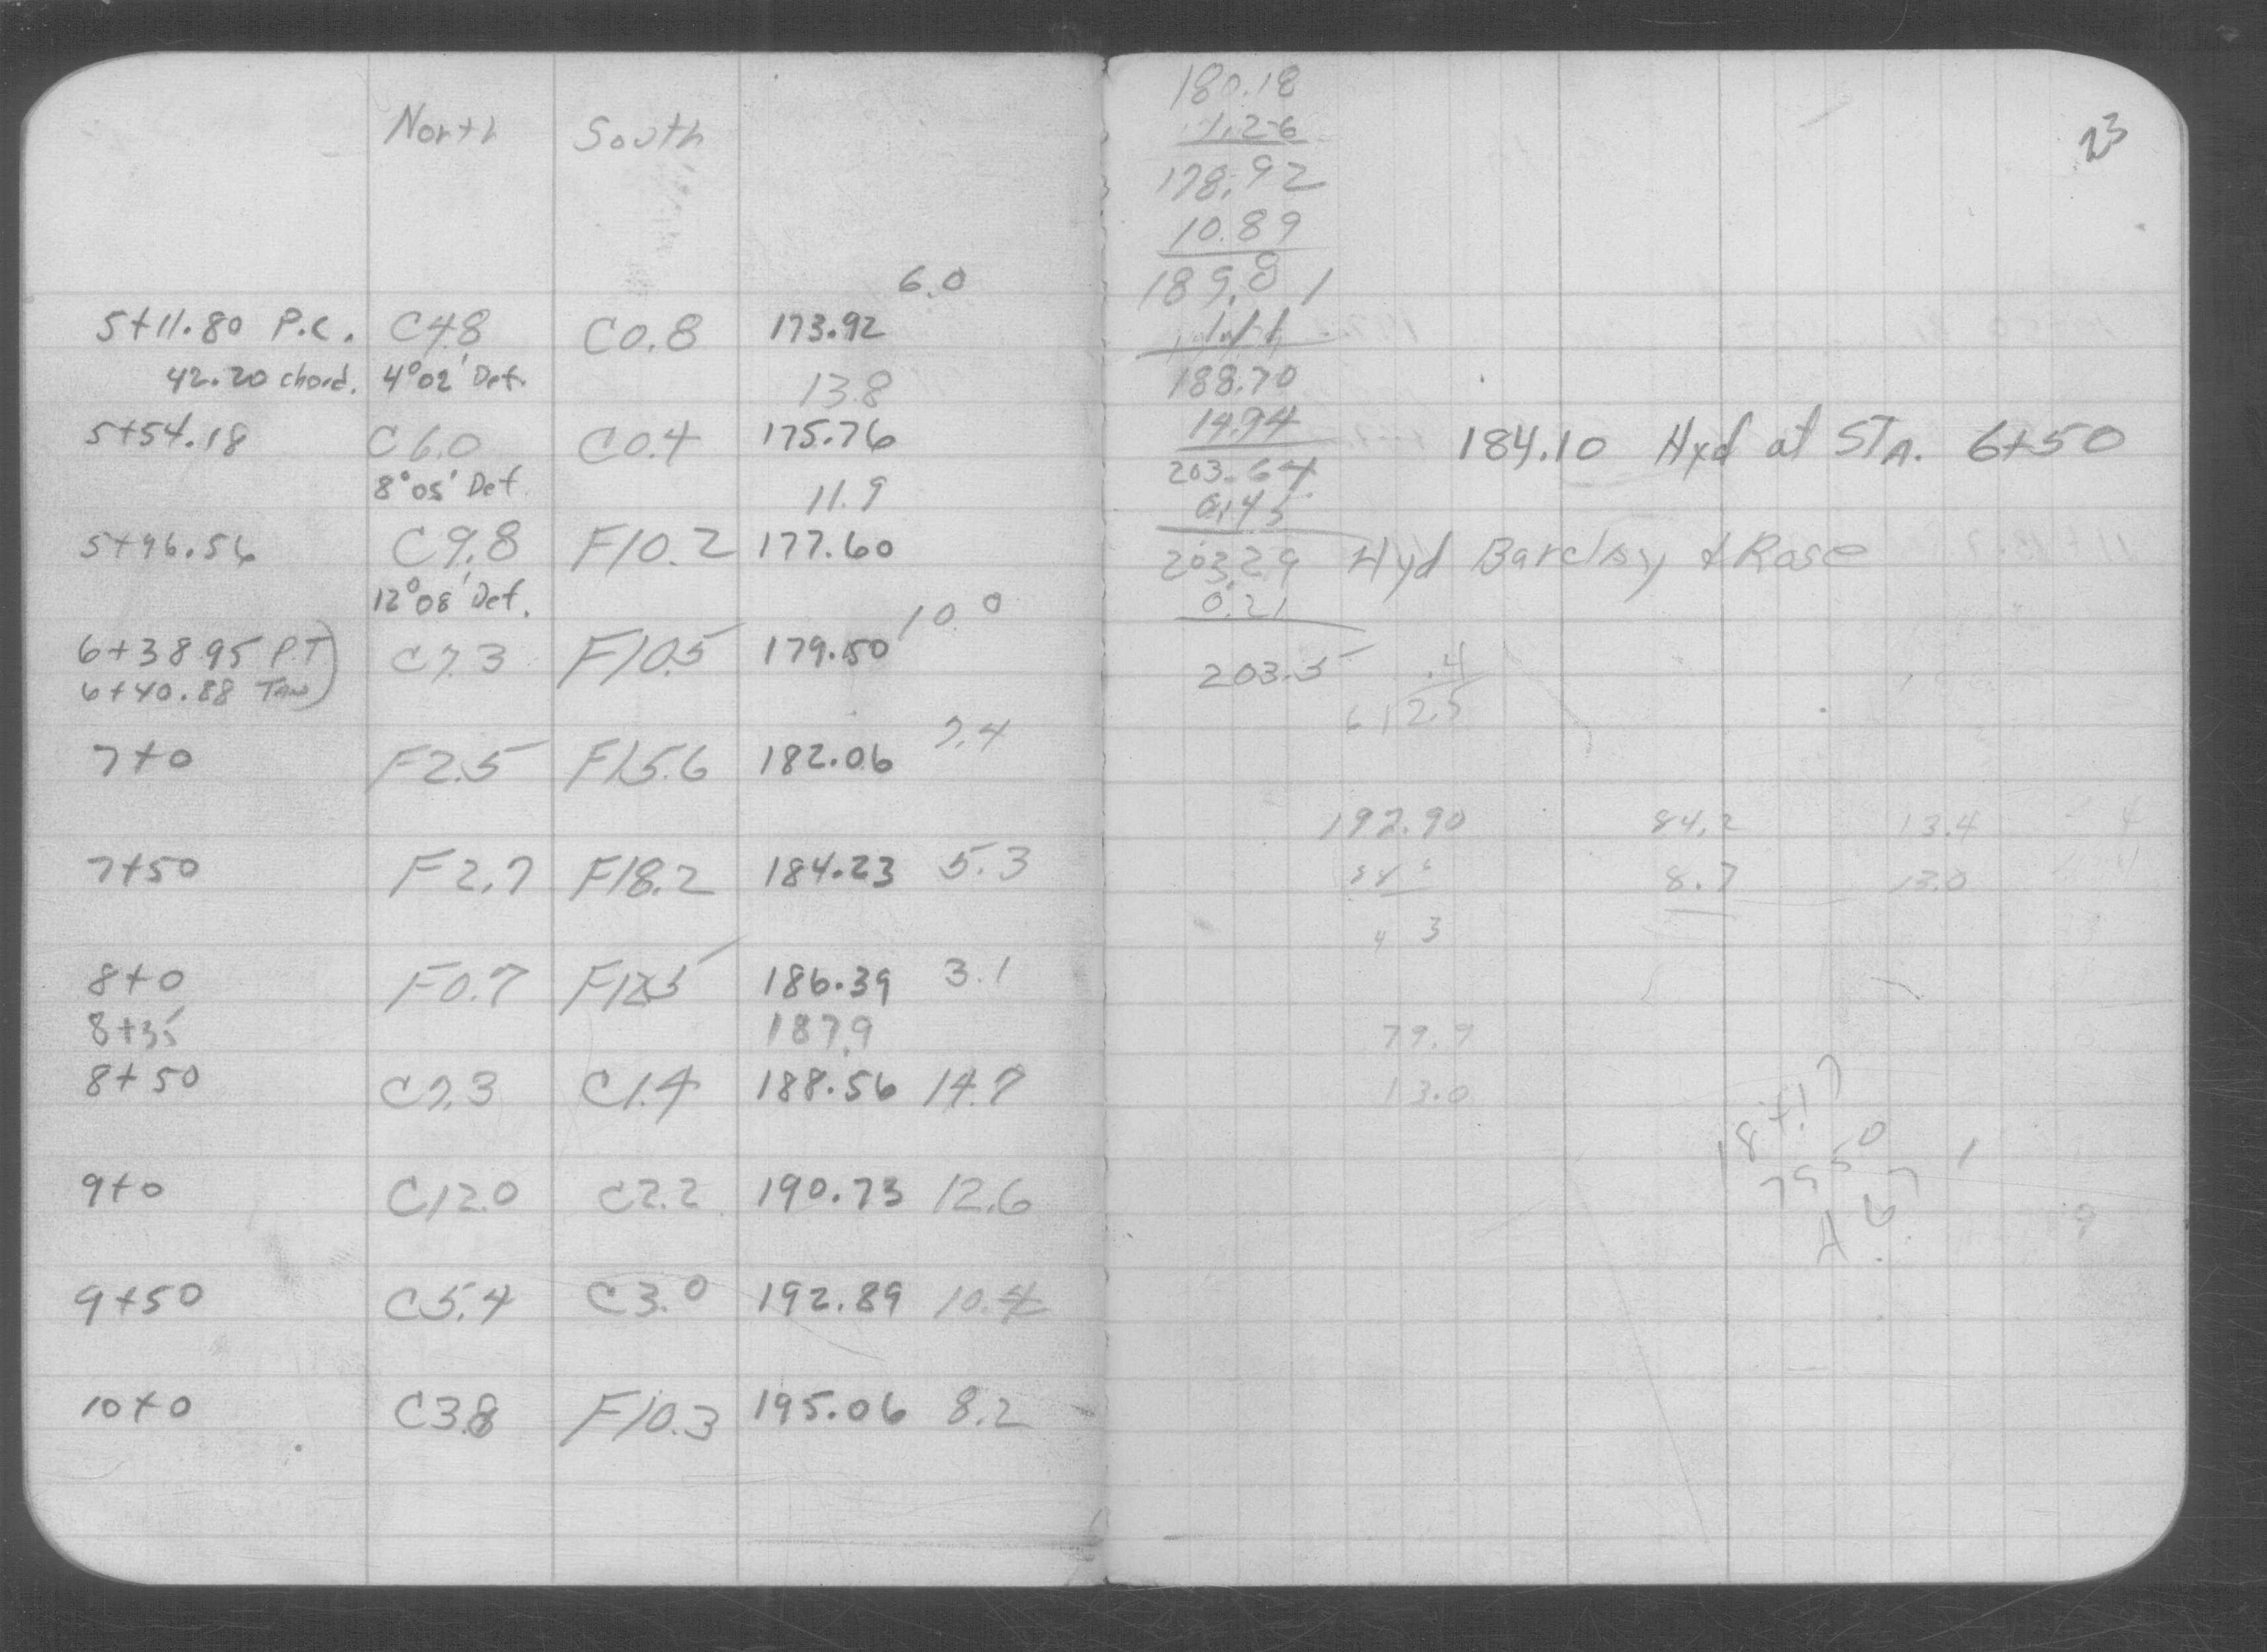 North South
6.0
5+11.80 P.C. C4.8 C0.8 173.92
42.20 chord. 4°02' Def. 13.8
5+54.18 C6.0 C0.4 175.76
8°05' Def. 11.9
5+96.56 C9.8 F10.2 177.60
12°08' Def. 10.0
6+38.95 P.T) C7.3 F10.5 179.50
6+40.88 Tan)
7+0 F2.5 F15.6 182.06 7.4
7+50 F2.7 F18.2 184.23 5.3
8+0 F0.7 186.39 3.1
8+35 187.9
8+50 C7.3 C1.4 188.56 14.7
9+0 C12.0 C2.2 190.73 12.6
9+50 C5.4 C3.0 192.89 10.4
10+0 C3.8 F10.3 195.06 8.2
23
180.18
1.26
178.92
10.89
189.81
188.70
14.94
184.10 Hyd at STA. 6+50
203.64
203.29 Hyd Barclay & Rose
0.21
203.5
.4
612.5
192.90 84.2 13.4
8.7 13.0
3
79.9
13.0
18+17
7950